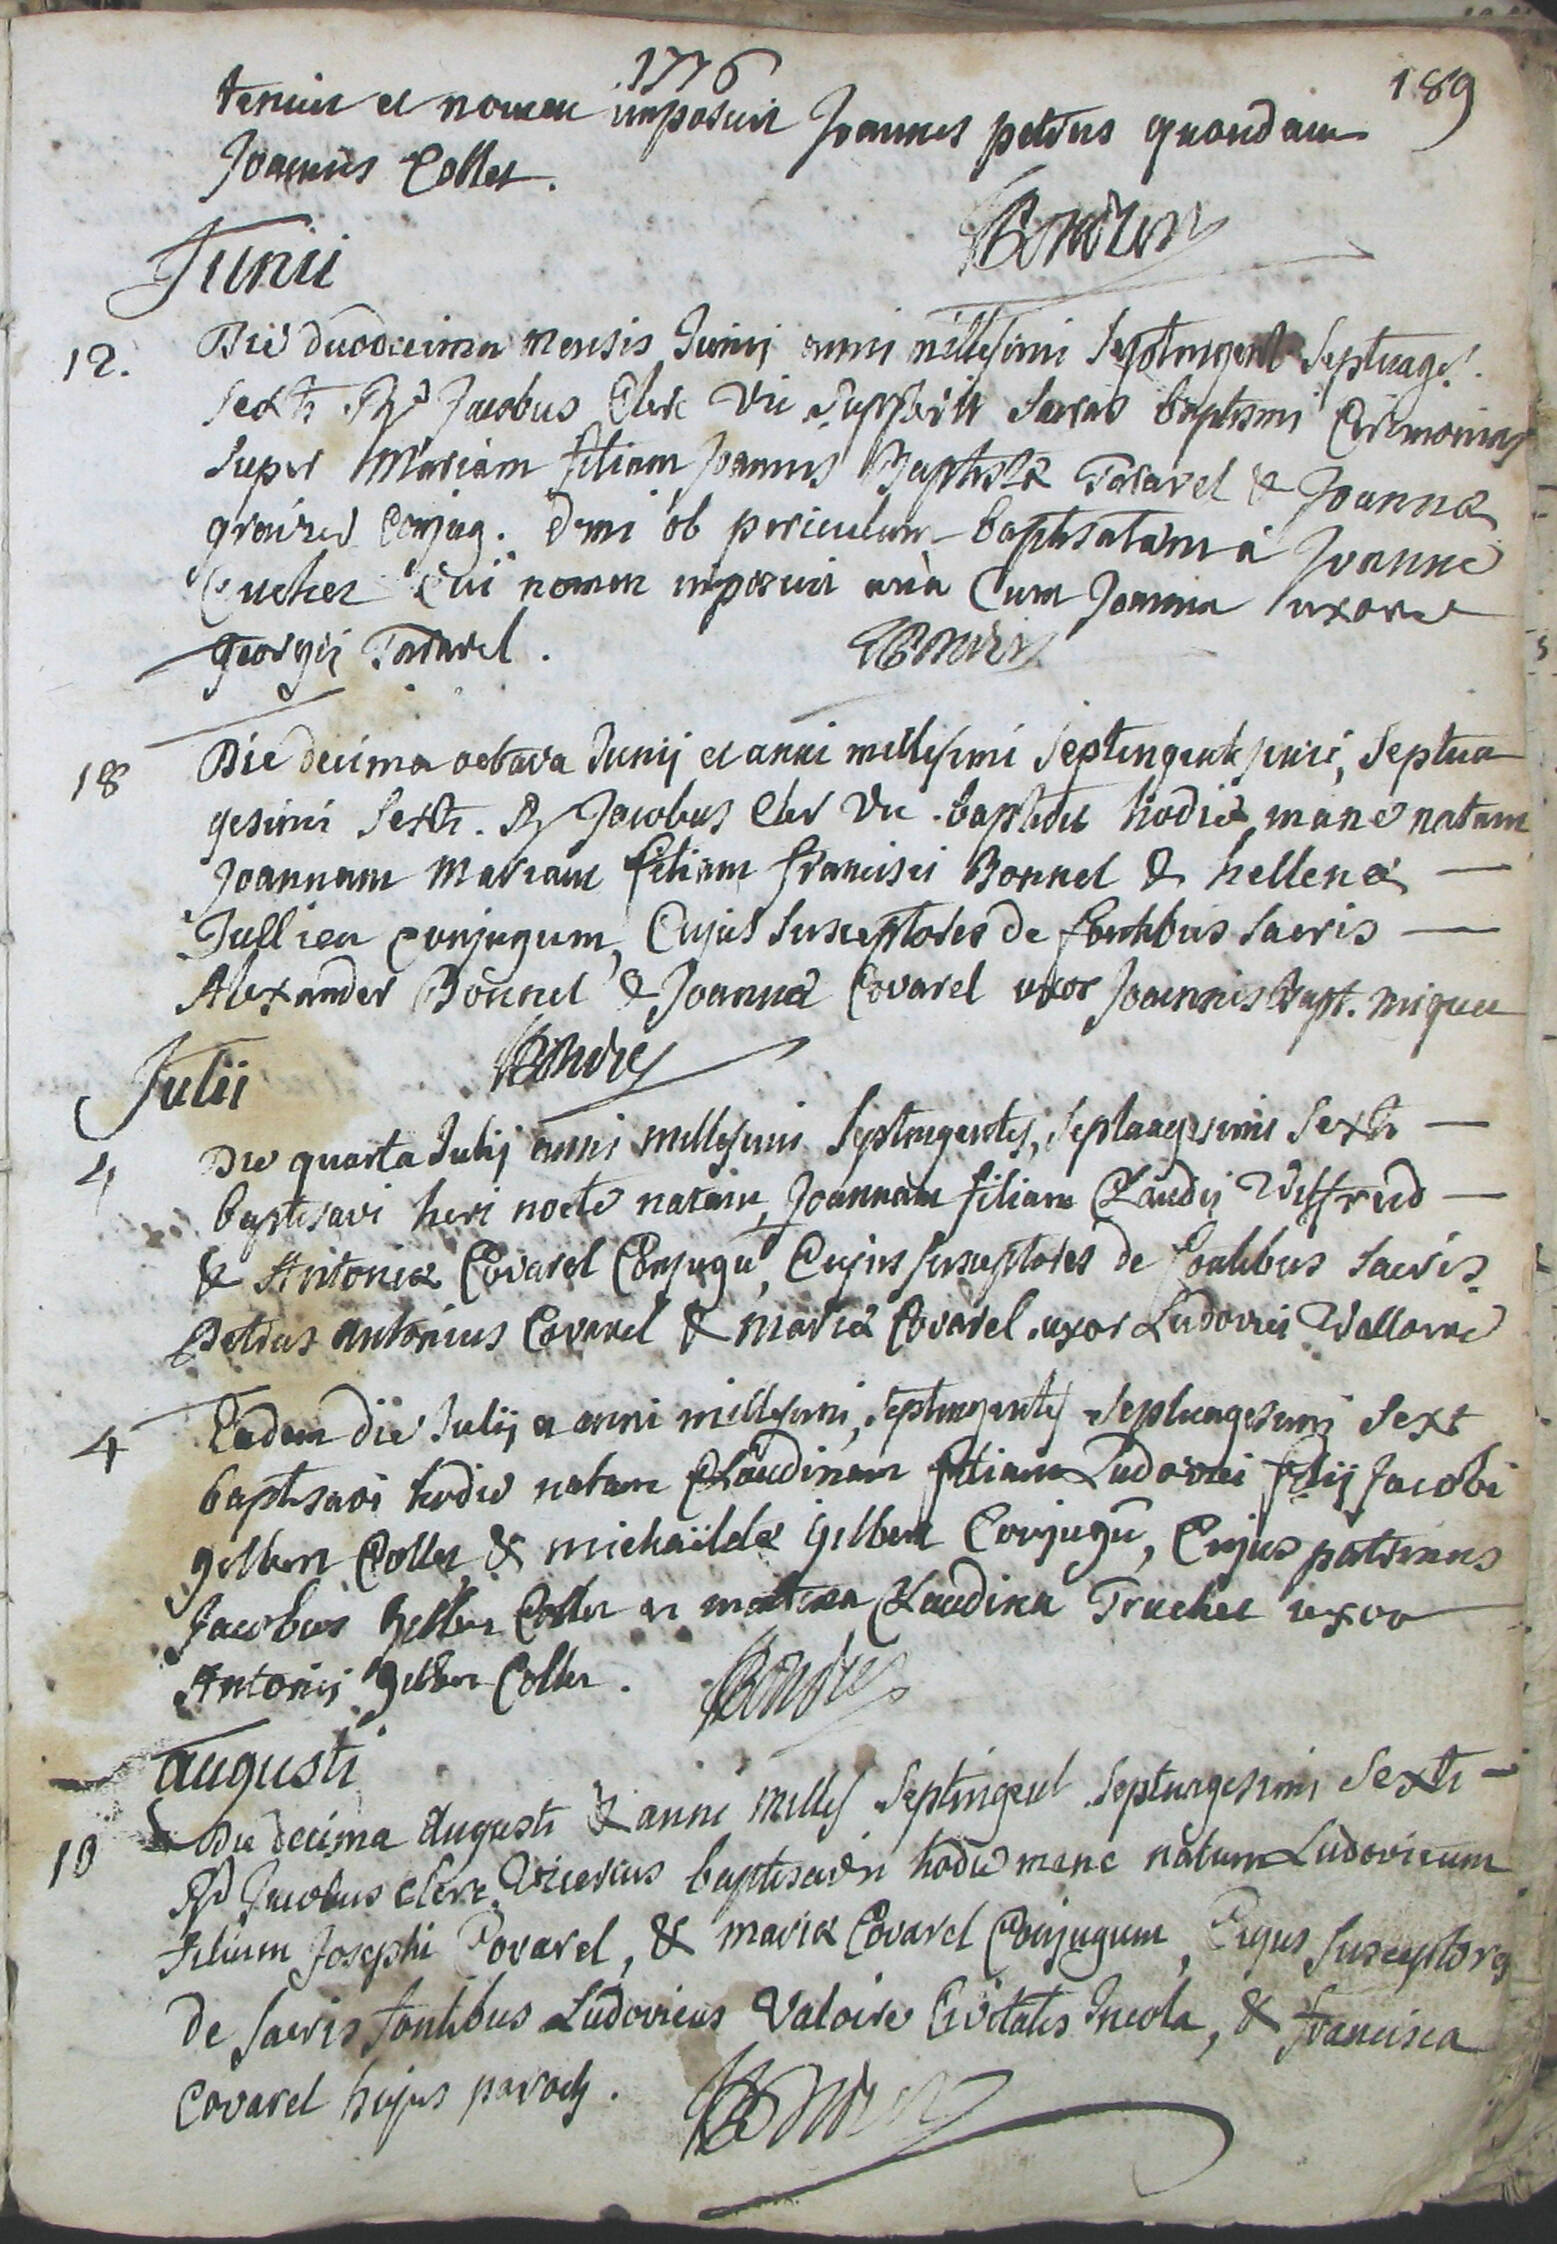 1776
189
tenuit et nomen imposuit Joannes petrus quondam
Joannis Collet.
Junii
12. Die duodecima mensis Junij anni millesimi Septingent Septuages.
Sexti Rd Jacobus Clerc Vic supplevit sacras baptismi Cerimonias
super Mariam filiam Joannis Baptistæ Tararel & Joannæ
conjug. domi ob periculum baptisatam à Joanne
cui nomen imposuit unà Cum Joanna uxore
georgij Tararel.
18 Die decima octava Junij et anni millesimi Septingentesimi, Septua
gesimi Sexti. Rd Jacobus Cler Vic. baptisavit hodie mane natam
Joannam Mariam filiam francisci Bonnel & hellenæ
Jullien conjugum, Cujus Susceptores de fontibus Sacris
Alexander Bonnel & Joanna Covarel uxor Joannis Bapt. miquel
Julii
4 Die quarta Julij anni millesimi Septingentes, Septuagesimi Sexti
baptisavi heri nocte natam, Joannam filiam Claudij Vuffred
& Antoniæ Covarel Conjugū, Cujus susceptores de fontibus Sacris
Petrus antonius Covarel & maria Covarel uxor Ludovici Valloire
4 Eadem die Julij et anni millesimi, Septingentes Septuagesimi Sext
baptisavi hodie natam Claudinam filiam Ludovici filij Jacobi
gilbert Collet & michaëldæ gilbert Conjugū, Cujus patrinus
Jacobus gilbert Collet et matrina Claudina Truchet uxor
Antonij gilbert Collet.
augusti
10 Die decima Augusti & anni milles Septingent Septuagesimi Sexti
Rd Jacobus Clerc Vicarius baptisavit hodie mane natum Ludovicum
filium Josephi Covarel, & mariæ Covarel Conjugum, Cujus Susceptores
de Sacris fontibus Ludovicus Valoire Civitatis Incola, & francisca
Covarel hujus paroch.